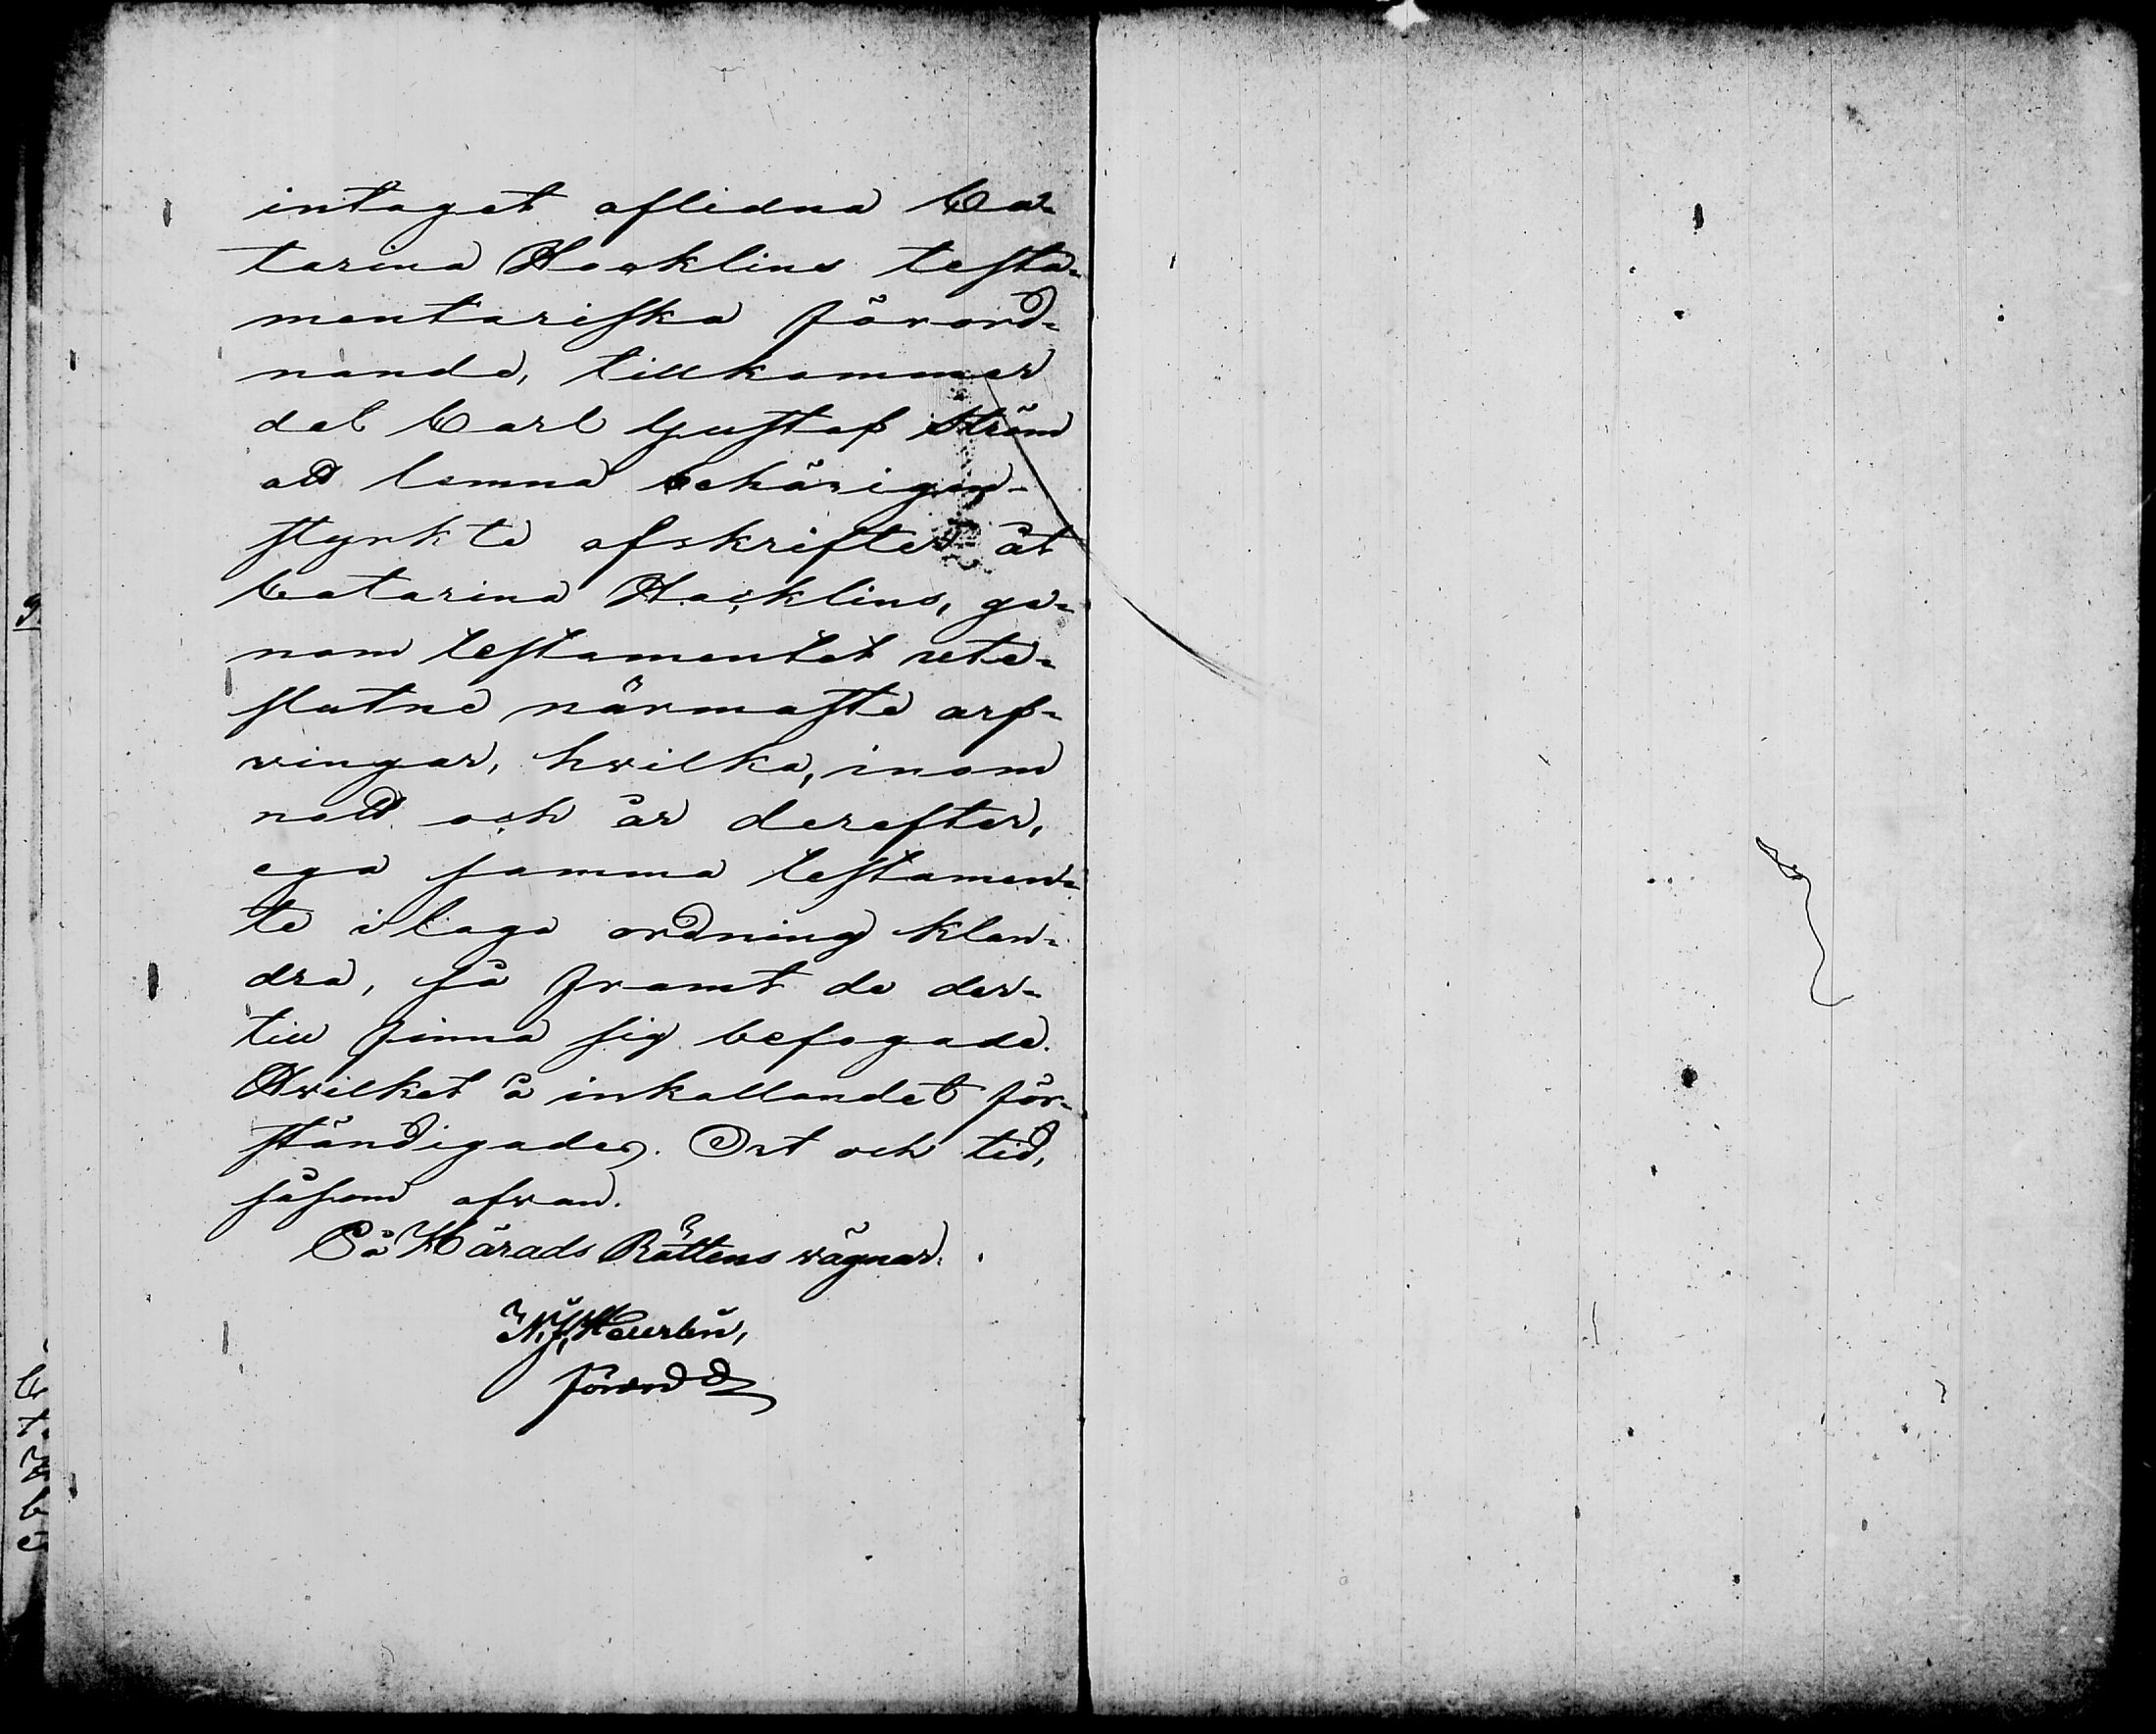 intaget aflidna Ca-
tarina Hocklins testa-
mentariska förord-
nande, tillkommer
det Carl Gustaf Ström
att lemna behörigen
styrkte afskrifter åt
Catarina Hocklins, ge-
nom testamentet ute-
slutne närmaste arf-
wingar, hwilka, inom
natt och år derefter,
ega samma testamen-
te i laga ordning klan-
dra, så framt de der-
till finna sig befogade.
Hwilket å inkallandet för-
ständigades. Ort och tid,
såsom ofwan.
På Härads Rättens wägnar.
förordd